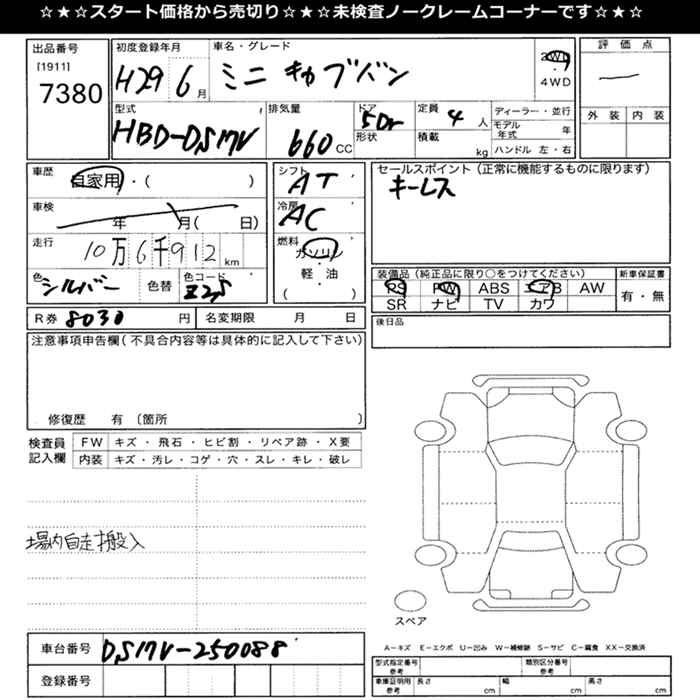 ☆★☆スタート価格から売切り☆★☆未検査ノークレームコーナーです☆★☆
出品番号
[1911]
7380
初度登録年月
H29 6月
車名・グレード
ミニ キャブバン
2WD
4WD
評価点
外装 内装
型式
HBD-DS17V
排気量
660 CC
ドア
5Dr
形状
定員
4人
積載
kg
ディーラー・並行
モデル年式 年
ハンドル 左・右
車歴
自家用・( )
車検
年 月( 日)
走行
10万6千912 km
色
シルバー
色替
色コード
Z2S
シフト
AT
冷房
AC
燃料
ガソリン
軽・油
( )
セールスポイント(正常に機能するものに限ります)
キーレス
装備品(純正品に限り○をつけてください)
PS PW ABS エアB AW
SR ナビ TV カワ
新車保証書
有・無
R券 8030 円
名変期限 月 日
後日品
注意事項申告欄(不具合内容等は具体的に記入して下さい)
修復歴 有 〔箇所 〕
検査員記入欄
FW キズ・飛石・ヒビ割・リペア跡・X要
内装 キズ・汚レ・コゲ・穴・スレ・キレ・破レ
場内自走搬入
スペア
A-キズ E-エクボ U-凹み W-補修跡 S-サビ C-腐食 XX-交換済
車台番号 DS17V-250088
登録番号
型式指定番号 参考
類別区分番号 参考
車庫証明用 参考
長さ cm 幅 cm 高さ cm